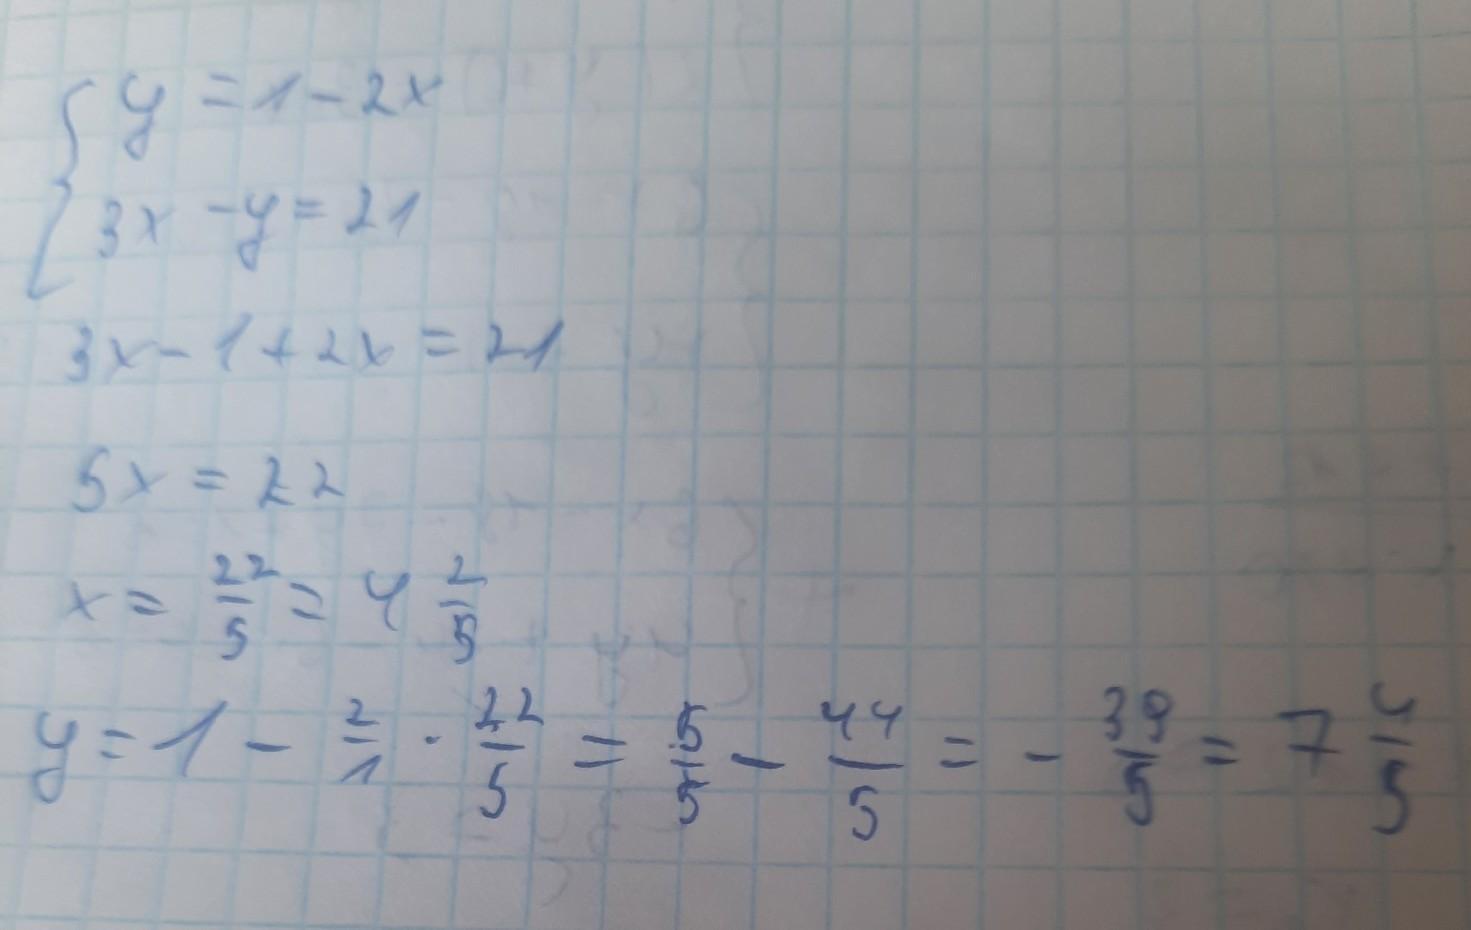 { y = 1 - 2x
3x - y = 21
3x - 1 + 2x = 21
5x = 22
x = 22/5 = 4 2/5
y = 1 - 2/1 · 22/5 = 5/5 - 44/5 = - 39/5 = 7 4/5